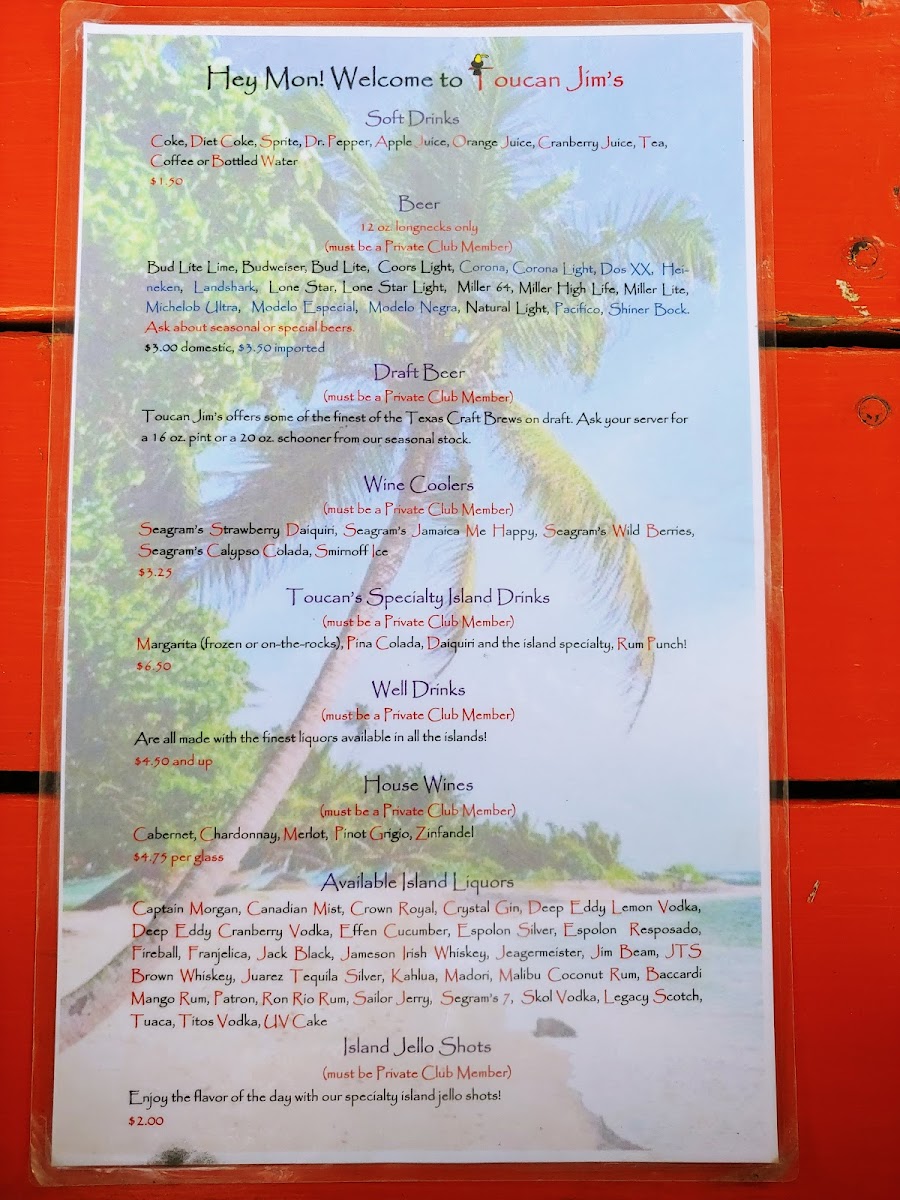 Hey Mon! Welcome to Toucan Jim's
Soft Drinks
Coke, Diet Coke, Sprite, Dr. Pepper, Apple Juice, Orange Juice, Cranberry Juice, Tea,
Coffee or Bottled Water
$1.50
Beer
12 oz. longnecks only
(must be a Private Club Member)
Bud Lite Lime, Budweiser, Bud Lite, Coors Light, Corona, Corona Light, Dos XX, Hei-
neken, Landshark, Lone Star, Lone Star Light, Miller 64, Miller High Life, Miller Lite,
Michelob Ultra, Modelo Especial, Modelo Negra, Natural Light, Pacifico, Shiner Bock.
Ask about seasonal or special beers.
$3.00 domestic, $3.50 imported
Draft Beer
(must be a Private Club Member)
Toucan Jim's offers some of the finest of the Texas Craft Brews on draft. Ask your server for
a 16 oz. pint or a 20 oz. schooner from our seasonal stock.
Wine Coolers
(must be a Private Club Member)
Seagram's Strawberry Daiquiri, Seagram's Jamaica Me Happy, Seagram's Wild Berries,
Seagram's Calypso Colada, Smirnoff Ice
$3.25
Toucan's Specialty Island Drinks
(must be a Private Club Member)
Margarita (frozen or on-the-rocks), Pina Colada, Daiquiri and the island specialty, Rum Punch!
$6.50
Well Drinks
(must be a Private Club Member)
Are all made with the finest liquors available in all the islands!
$4.50 and up
House Wines
(must be a Private Club Member)
Cabernet, Chardonnay, Merlot, Pinot Grigio, Zinfandel
$4.75 per glass
Available Island Liquors
Captain Morgan, Canadian Mist, Crown Royal, Crystal Gin, Deep Eddy Lemon Vodka,
Deep Eddy Cranberry Vodka, Effen Cucumber, Espolon Silver, Espolon Resposado,
Fireball, Franjelica, Jack Black, Jameson Irish Whiskey, Jeagermeister, Jim Beam, JTS
Brown Whiskey, Juarez Tequila Silver, Kahlua, Madori, Malibu Coconut Rum, Baccardi
Mango Rum, Patron, Ron Rio Rum, Sailor Jerry, Segram's 7, Skol Vodka, Legacy Scotch,
Tuaca, Titos Vodka, UV Cake
Island Jello Shots
(must be Private Club Member)
Enjoy the flavor of the day with our specialty island jello shots!
$2.00